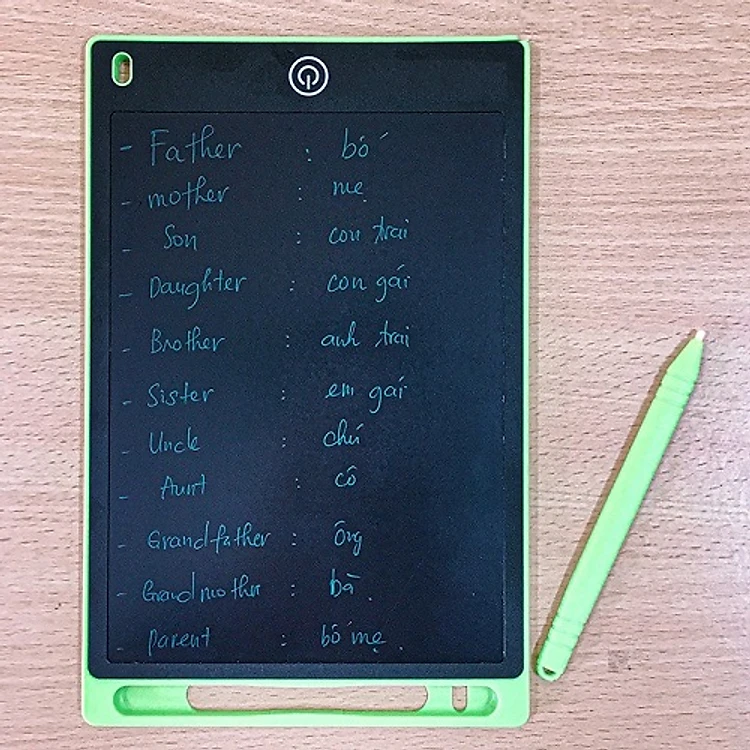 - Father : bố
- mother : mẹ
- Son : con trai
- Daughter : con gái
- Brother : anh trai
- Sister : em gái
- Uncle : chú
- Aunt : cô
- Grandfather : Ông
- Grandmother : bà.
- parent : bố mẹ.